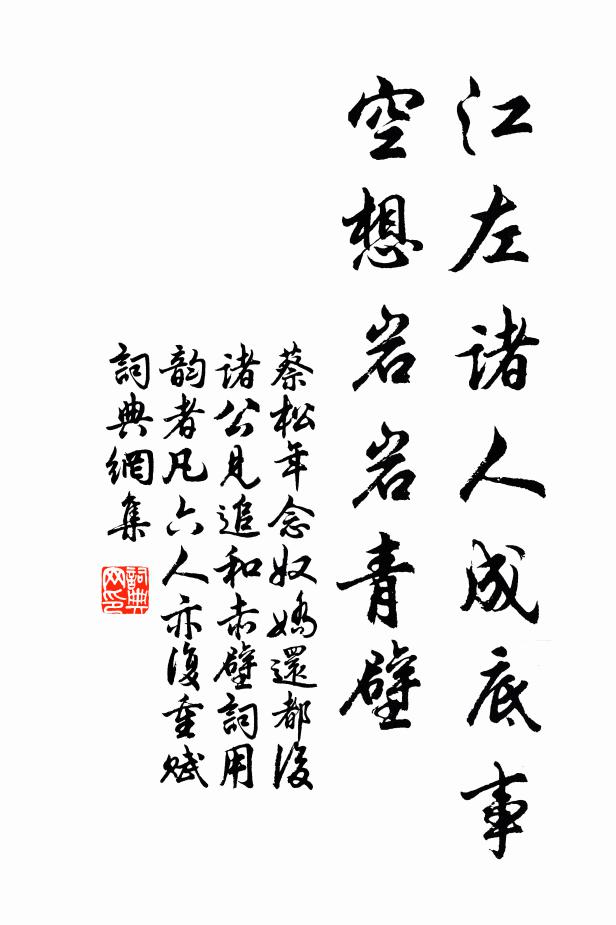 江左诸人成底事
空想岩岩青壁
蔡松年念奴娇還都後
诸公見追和赤壁詞用
韵者凡六人亦復重赋
詞典網集
詞典
网印